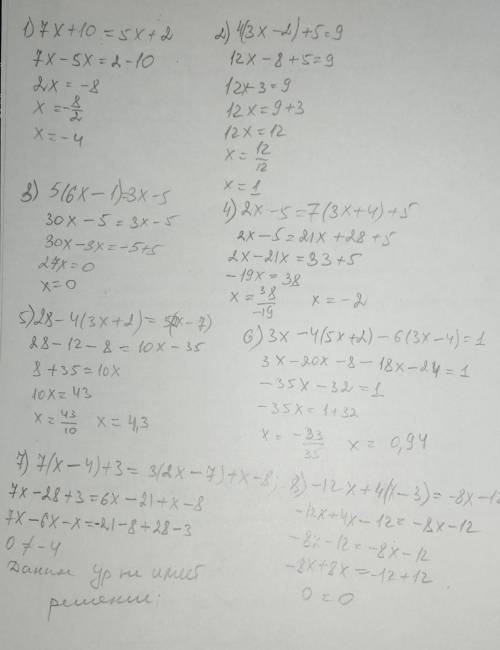 1) 7x+10=5x+2
7x-5x=2-10
2x=-8
x=-8/2
x=-4
2) 4(3x-2)+5=9
12x-8+5=9
12x-3=9
12x=9+3
12x=12
x=12/12
x=1
3) 5(6x-1)=3x-5
30x-5=3x-5
30x-3x=-5+5
27x=0
x=0
4) 2x-5=7(3x+4)+5
2x-5=21x+28+5
2x-21x=33+5
-19x=38
x=38/-19 x=-2
5) 28-4(3x+2)=5(2x-7)
28-12-8=10x-35
8+35=10x
10x=43
x=43/10 x=4,3
6) 3x-4(5x+2)-6(3x-4)=1
3x-20x-8-18x-24=1
-35x-32=1
-35x=1+32
x=-33/35 x=0,94
7) 7(x-4)+3=3(2x-7)+x-8;
7x-28+3=6x-21+x-8
7x-6x-x=-21-8+28-3
0≠-4
ур не имеет
решении;
8) -12x+4(x-3)=-8x-12
-12x+4x-12=-8x-12
-8x-12=-8x-12
-8x+8x=-12+12
0=0